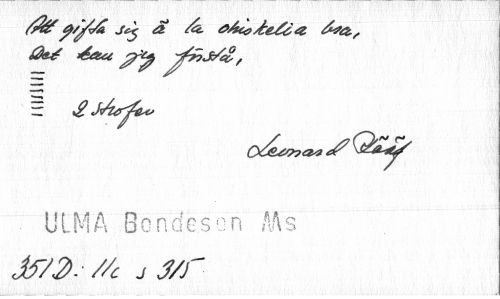 Att gifta sig ä la obiskelia bra,
Det kan jag förstå,
2 strofer
Leonard Rääf
ULMA Bondeson Ms
351D: 11c s 315